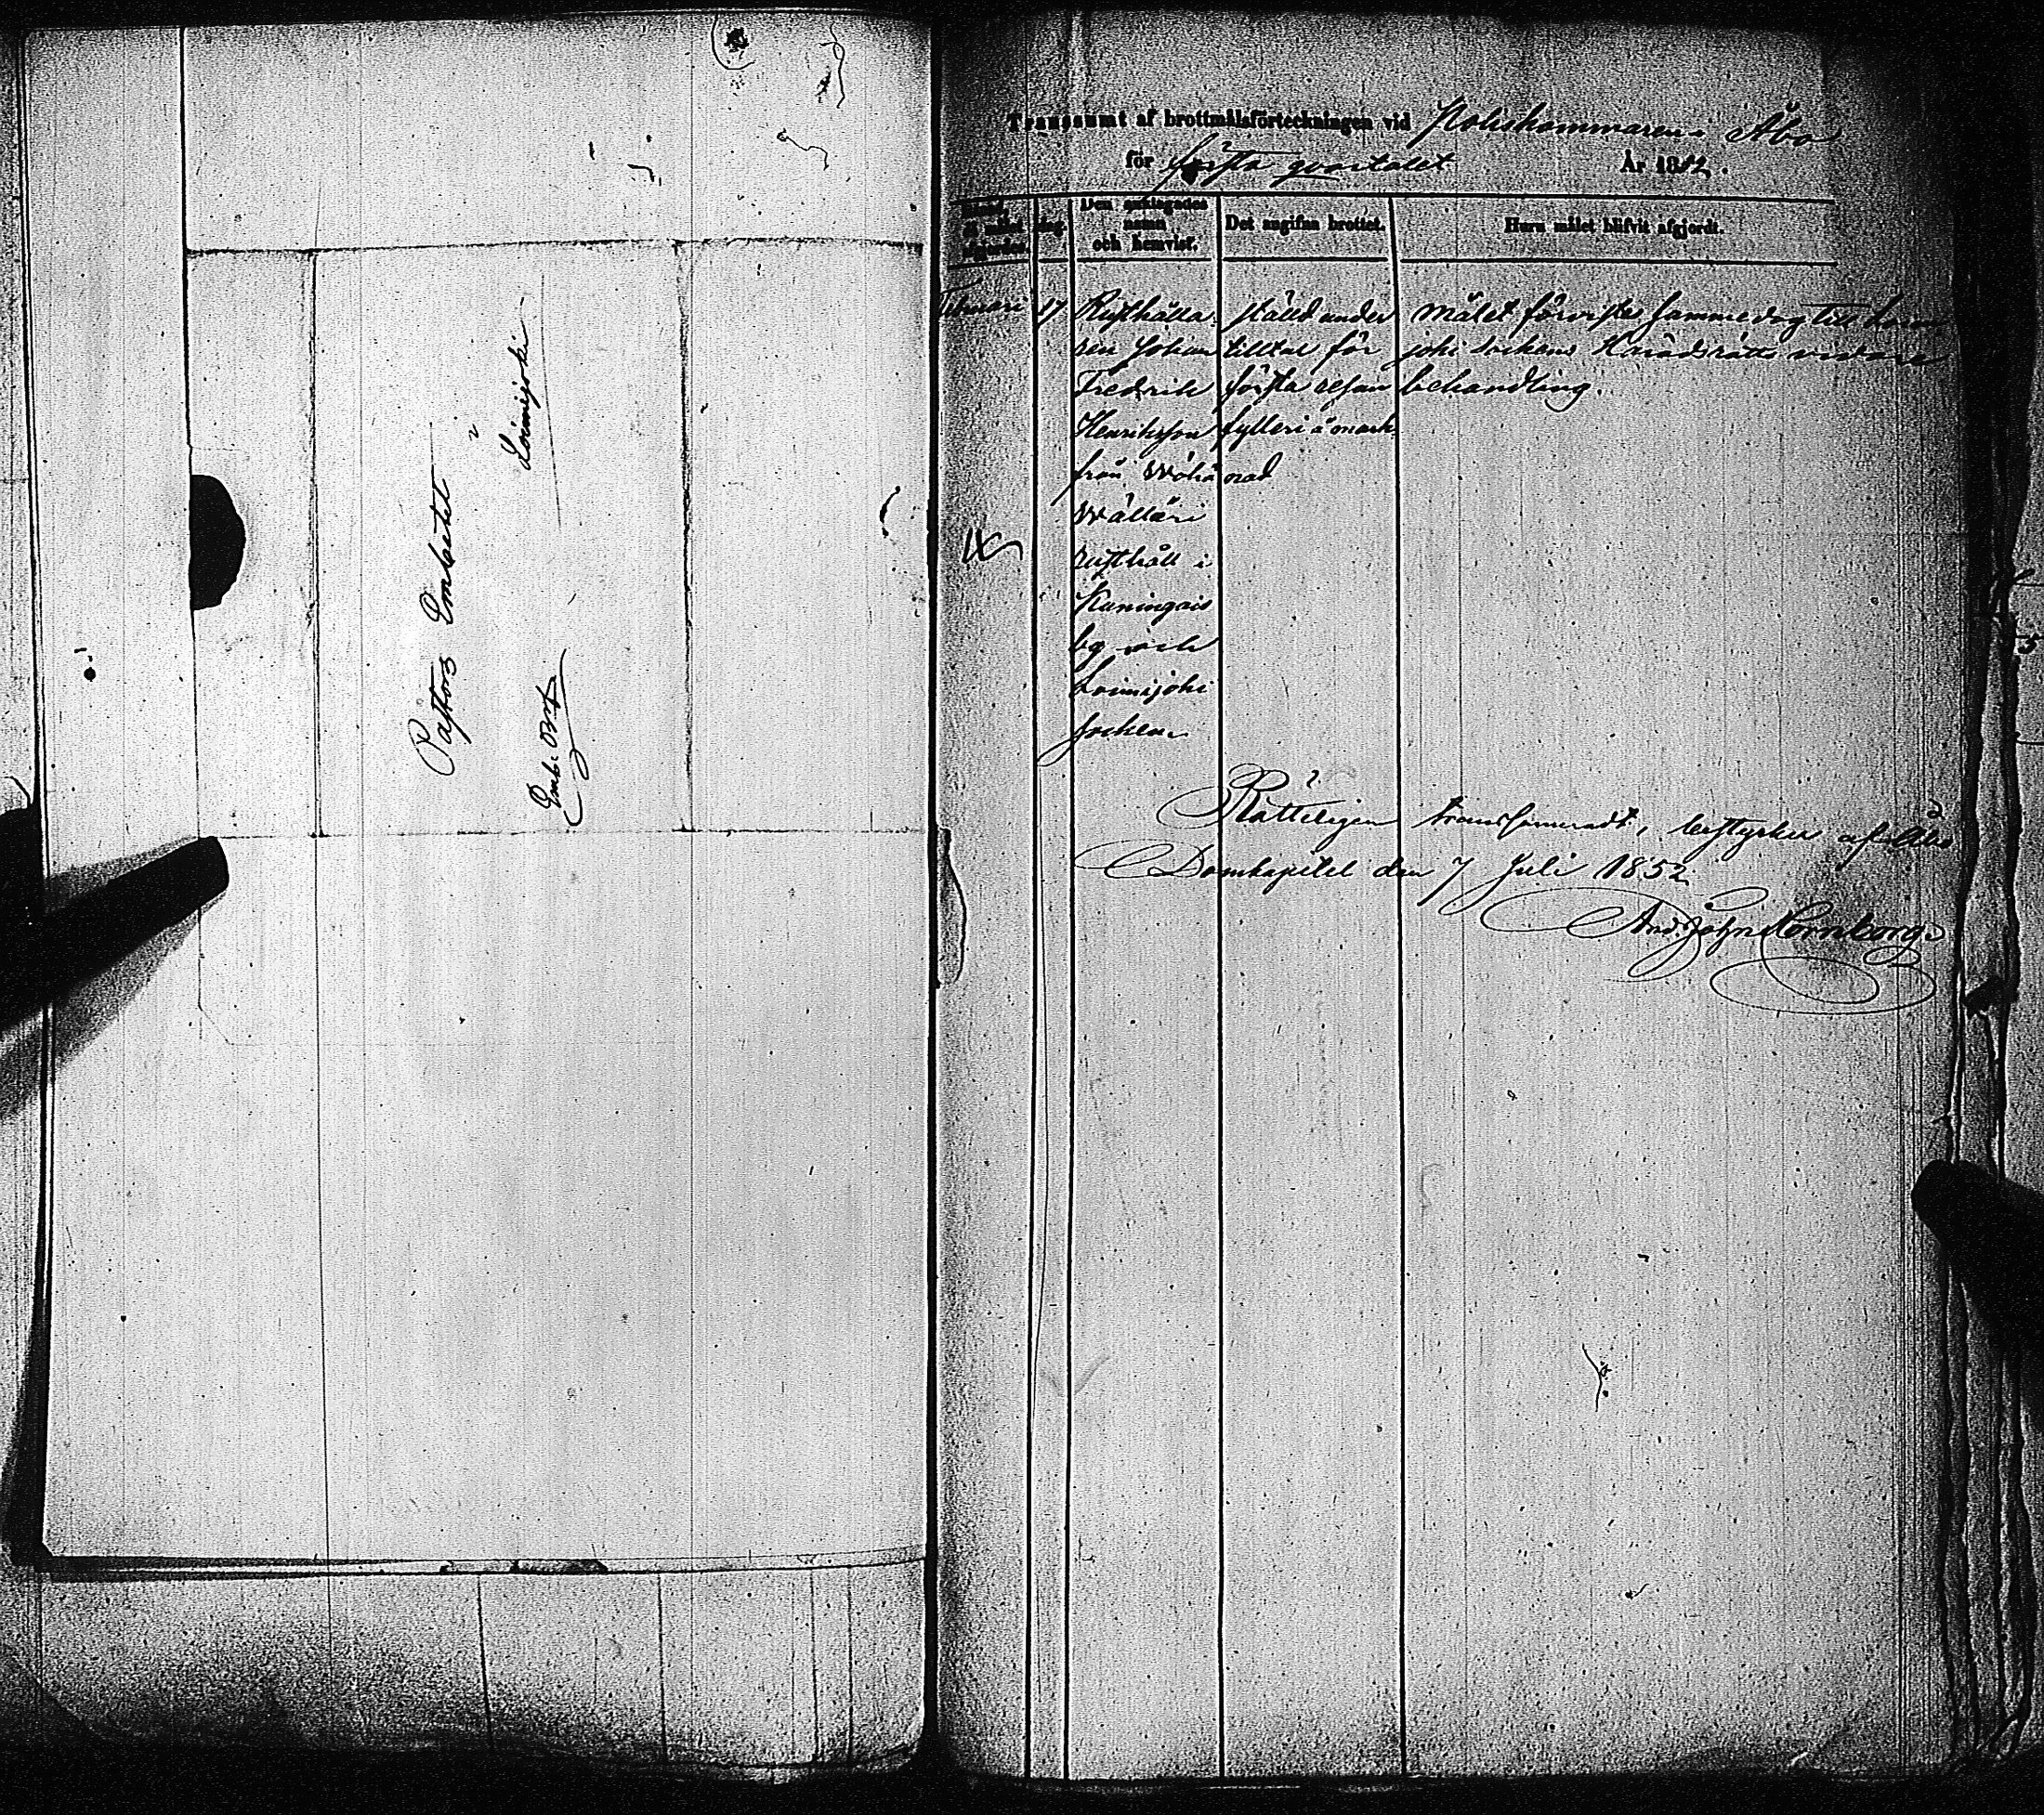 Pastors Embetet
i
Loimijoki
Emb: Bref
Transsumt af brottmålsförteckningen vid Poliskammaren i Åbo
för första qvartalet År 1852.
då målet dag. Den anklagades namn och hemvist. Det angifna brottet. Huru målet blifvit afgjordt.
Februari 17 Rusthålla- ställd under Målet förvistes samme dag till Loimi
ren Johan tilltal för joki sockens Häradsrätts vidare
Fredrik första resan behandling.
Henriksson fylleri å mark-
från nad
Wälläri
rusthåll i
Kuningois
by och
Loimijoki
socken
Rätteligen transsumeradt, bestyrker af Åbo
Domkapitel den 7 Juli 1852.
And. John Hornborg